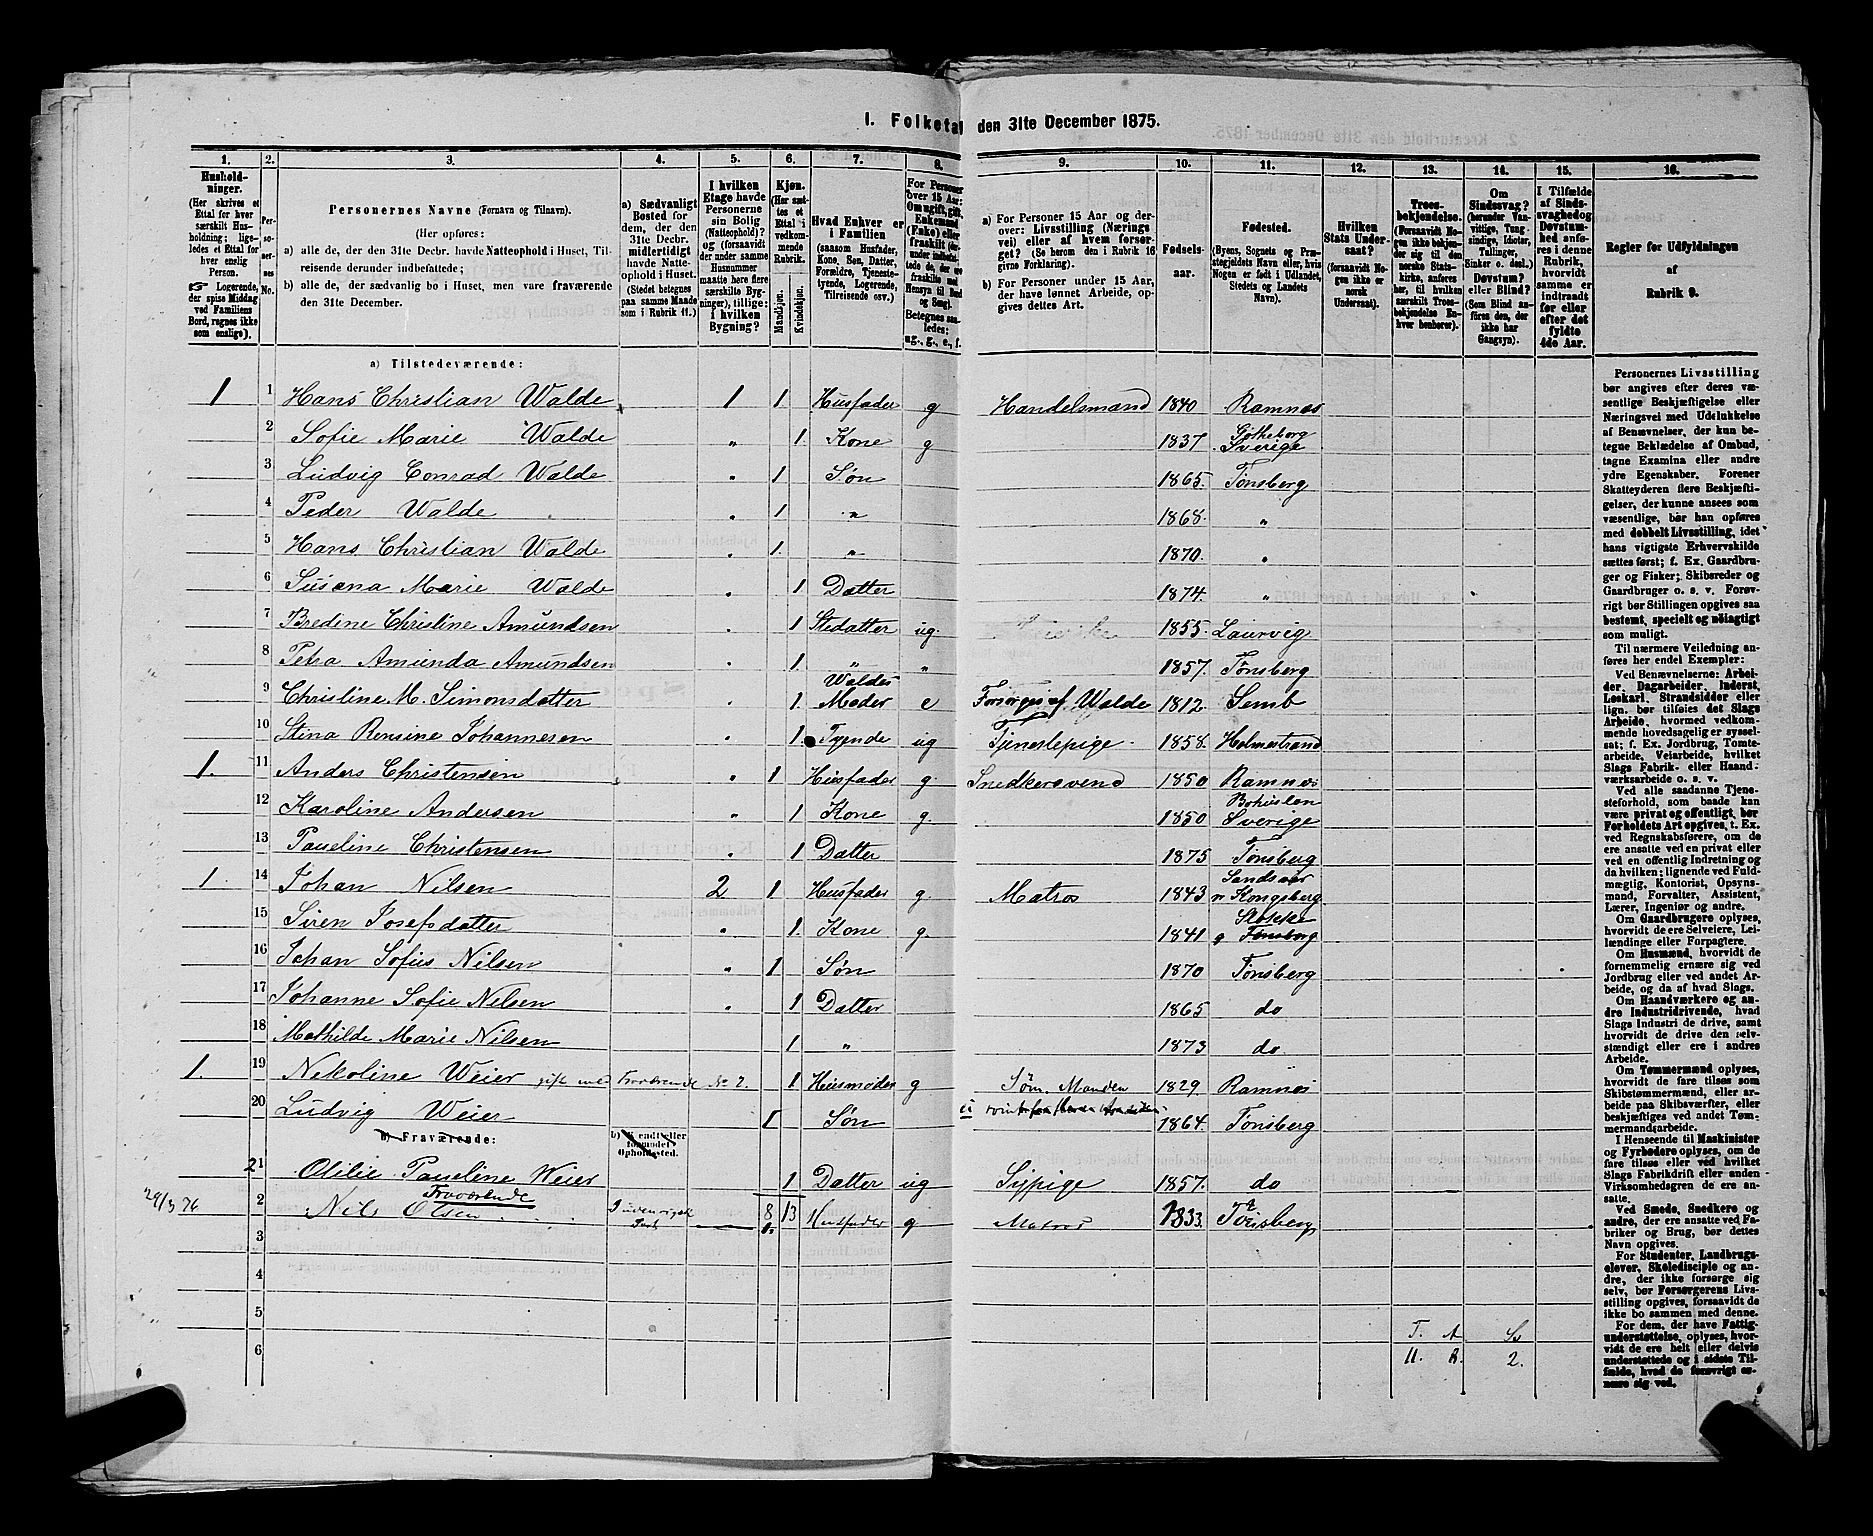 I. Folketal den 31te December 1875.
1. 2. 3. 4. 5. 6. 7. 8. 9. 10. 11. 12. 13. 14. 15. 16.
Husholdninger. (Her skrives et Ettal for hver særskilt Husholdning; ligeledes et Ettal for hver enslig Person. Logerende, der spise Middag ved Familiens Bord, regnes ikke som enslige).
Personernes No.
Personernes Navne (Fornavn og Tilnavn).
(Her opføres:
a) alle de, der den 31te Decbr. havde Natteophold i Huset, Tilreisende derunder indbefattede;
b) alle de, der sædvanlig bo i Huset, men vare fraværende den 31te December.
a) Sædvanligt Bosted for dem, der den 31te Decbr. midlertidigt havde Natteophold i Huset. (Stedet betegnes paa samme Maade som i Rubrik 11.)
I hvilken Etage havde Personerne sin Bolig (Natteophold)? og (forsaavidt der under samme Husnummer maatte høre flere særskilte Bygninger), tillige: I hvilken Bygning?
Kjøn. (Her sættes et Ettal i vedkommende Rubrik. Mandkjøn. Kvindekjøn.
Hvad Enhver er i Familien (saasom Husfader, Kone, Søn, Datter, Forældre, Tjenestetyende, Logerende, Tilreisende osv.)
For Personer over 15 Aar:
Betegnes saaledes: ug., g., e., f.
a) For Personer 15 Aar og derover: Livsstilling (Næringsvei) eller af hvem forsørget? (Se herom den i Rubrik 16 givne Forklaring).
b) For Personer under 15 Aar, der have lønnet Arbeide, opgives dettes Art.
Fødselsaar.
Fødested. (Byens, Sognets og Præstegjeldets Navn eller, hvis Nogen er født i Udlandet, Stedets og Landets Navn).
Hvilken Stats Undersaat? (forsaavidt Nogen ikke er norsk Undersaat).
Troesbekjendelse. (Forsaavidt Nogen ikke bekjender sig til den norske Statskirke, anføres her, til hvilken særskilt Troesbekjendelse Enhver henhører).
Om Sindssvag? (herunder Vanvittige, Tungsindige, Idioter, Tullinger, Sinker o. desl.) Døvstum? eller Blind? (Som Blind anføres den, der ikke har Gangsyn).
I Tilfælde af Sindssvaghed og Døvstumhed anføres i denne Rubrik, hvorvidt samme er indtraadt før eller efter det fyldte 4de Aar.
Regler for Udfyldningen af Rubrik 9.
a) Tilstedeværende:
1 1 Hans Christian Walde 1 1 Husfader g Handelsmand 1840 Ramnæs
2 Sofie Marie Walde " 1 Kone g 1837 Gøtheborg Sverige
3 Ludvig Conrad Walde " 1 Søn 1865 Tønsberg
4 Peder Walde " 1 " 1868 "
5 Hans Christian Walde " 1 " 1870 "
6 Susana Marie Walde " 1 Datter 1874 "
7 Bredine Christine Amundsen " 1 Stedatter ug. 1855 Laurvig
8 Petra Amunda Amundsen " 1 " " 1857 Tønsberg
9 Christine M. Simonsdatter " 1 Waldes Moder e Forsørges af Walde 1812 Semb
10 Stina Rensine Johannesen " 1 Tyende ug Tjenestepige 1858 Holmestrand
1. 11 Anders Christensen " 1 Husfader g. Snedkersvend 1850 Ramnæs
12 Karoline Andersen " 1 Kone g. 1850 Bohuslen Sverige
13 Pauline Christensen " 1 Datter 1875 Tønsberg
1. 14 Johan Nilsen 2 1 Husfader g. Matros 1843 Sandsvær Kongsberg
15 Siren Josefsdatter " 1 Kone g. 1841 Stokke Tønsberg
16 Johan Sofus Nilsen " 1 Søn 1870 Tønsberg
17 Johanne Sofie Nilsen " 1 Datter 1865 do
18 Mathilde Marie Nilsen 1 " 1873 do
1. 19 Nikoline Weier gift med Fraværende No 2. 1 Husmoder g Søm. Manden 1829 Ramnæs
20 Ludvig Weier 1 Søn 1864 Tønsberg
b) Fraværende: b) Kjendt eller formodet Opholdssted.
21 Otilie Pauline Weier 1 Datter ug Sypige 1857 do
Fraværende
29/3 76 2 Nils Olsen Indenrigsk 8 13 Husfader g Matros 1833 Tønsberg
3
4
5
6
T. A. S.
U. R. 2.
Personernes Livsstilling bør angives efter deres væsentlige Beskjæftigelse eller Næringsvei med Udelukkelse af Benævnelser, der kun betegne Beklædelse af Ombud, tagne Examina eller andre ydre Egenskaber. Forener Skatteyderen flere Beskjæftigelser, der kunne ansees som væsentlige, bør han opføres med dobbelt Livsstilling, idet hans vigtigste Erhvervskilde sættes først; f. Ex. Gaardbruger og Fisker; Skibsreder og Gaardbruger o. s. v. Forøvrigt bør Stillingen opgives saa bestemt, specielt og nøiagtigt som muligt.
Til nærmere Veiledning anføres her endel Exempler:
Ved Benævnelserne: Arbeider, Dagarbeider, Inderst, Løskarl, Strandsidder eller lign. bør tilføies det Slags Arbeide, hvormed vedkommende hovedsagelig er sysselsat; f. Ex. Jordbrug, Tomtearbeide, Veiarbeide, hvilket Slags Fabrik- eller Haandværksarbeide o. s. v.
Ved alle saadanne Tjenesteforhold, som baade kan være privat og offentligt, bør Forholdets Art opgives, t. Ex. ved Regnskabsførere, om de ere ansatte ved en privat eller ved en offentlig Indretning og da hvilken; lignende ved Fuldmægtig, Kontorist, Opsynsmand, Forvalter, Assistent, Lærer, Ingeniør og andre.
Om Gaardbrugere oplyses, hvorvidt de ere Selveiere, Leilændinge eller Forpagtere.
Om Husmænd, hvorvidt de fornemmelig ernære sig ved Jordbrug eller ved andet Arbeide, og da af hvad Slags.
Om Haandværkere og andre Industridrivende, hvad Slags Industri de drive, samt hvorvidt de drive den selvstændigt eller ere i andres Arbeide.
Om Tømmermænd oplyses, hvorvidt de fare tilsøs som Skibstømmermænd, eller arbeide paa Skibsværfter, eller beskjæftiges ved andet Tømmermandsarbeide.
I Henseende til Maskinister og Fyrbødere oplyses, om de fare tilsøs eller ved hvilket Slags Fabrikdrift eller anden Virksomhedsgren de ere ansatte.
Ved Smede, Snedkere og andre, der ere ansatte ved Fabriker og Brug, bør dettes Navn opgives.
For Studenter, Landbrugselever, Skoledisciple og andre, der ikke forsørge sig selv, bør Forsørgerens Livsstilling opgives, forsaavidt de ikke bo sammen med denne.
For dem, der have Fattigunderstøttelse, oplyses, hvorvidt de ere helt eller delvis understøttede og i sidste Tilfælde, hvad de forøvrigt ernære sig ved.